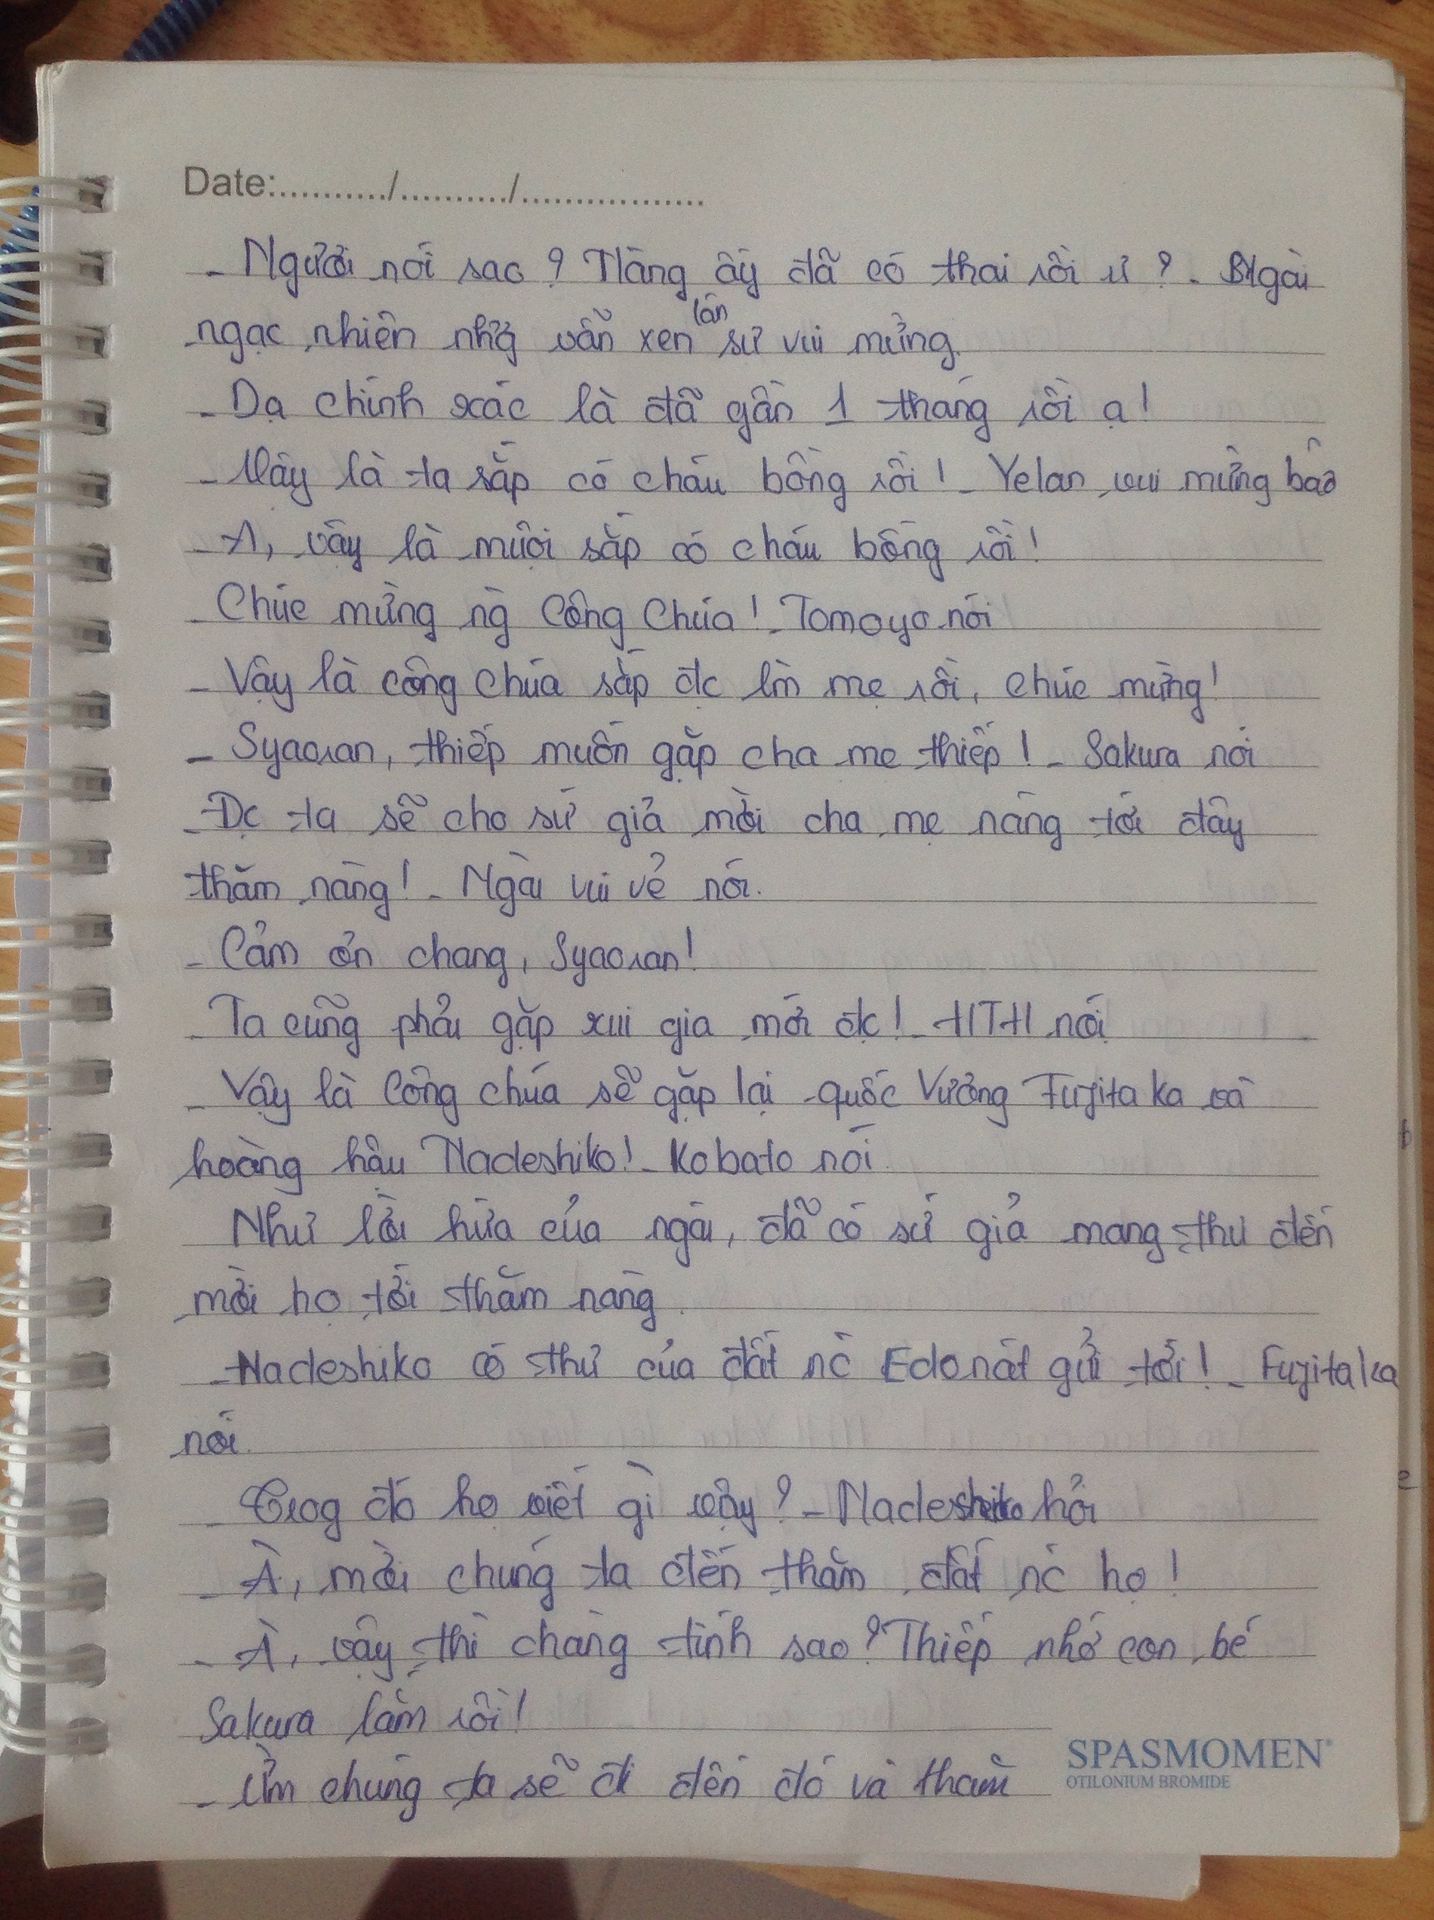 Date:........../........../.................
- Người nói sao? Nàng ấy đã có thai rồi ư? - Ngài
ngạc nhiên nhg vẫn xen lẫn sự vui mừng.
- Dạ chính xác là đã gần 1 tháng rồi ạ!
- Vậy là ta sắp có cháu bồng rồi! - Yelan vui mừng bảo
- À, vậy là muội sắp có cháu bồng rồi!
- Chúc mừng ng Công Chúa! - Tomoyo nói
- Vậy là công chúa sắp đc làm mẹ rồi, chúc mừng!
- Syaoran, thiếp muốn gặp cha mẹ thiếp! - Sakura nói
- Đc ta sẽ cho sứ giả mời cha mẹ nàng tới đây
thăm nàng! - Ngài vui vẻ nói.
- Cảm ơn chàng, Syaoran!
- Ta cũng phải gặp xui gia mới đc! - HTH nói
- Vậy là Công chúa sẽ gặp lại quốc Vương Fujitaka và
hoàng hậu Nadeshiko! - Kobato nói
Như lời hứa của ngài, đã có sứ giả mang thư đến
mời họ tới thăm nàng.
- Nadeshiko có thư của đất nc Edonát gửi tới! - Fujitaka
nói.
- Trog đó họ viết gì vậy? - Nadeshiko hỏi
- À, mời chúng ta đến thăm đất nc họ!
- À, vậy thì chàng tính sao? Thiếp nhớ con bé
Sakura lắm rồi!
- Ừm chúng ta sẽ đi đến đó và thăm
SPASMOMEN®
OTILONIUM BROMIDE